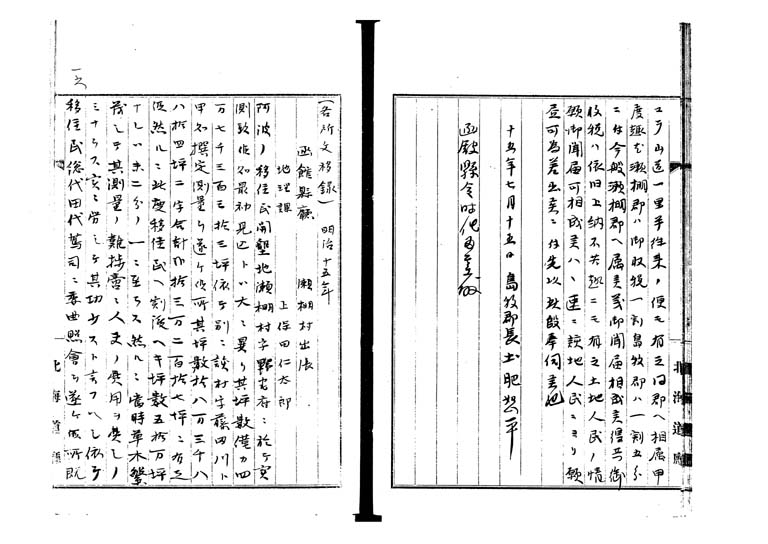 エラ山道一里半往来ノ便モ有之同郡ヘ相属甲
度趣モ瀬棚郡ハ御収税一割島牧郡ハ一割五分
ニ付今般瀬棚郡ヘ属美義御聞届相成美僅ニ御
収税ハ依旧上納不美趣ニモ有之土地人民ノ情
願御聞届可相成美ハヽ速ニ該地人民ニヨリ願
書可為差出美ニ付先以此段奉伺美也
十五年七月十五日 島牧郡長土肥
函館縣令時任為基殿
北海道廳
(各所文移録) 明治十五年
函館縣廳 瀬棚村出張
地理課 上保田仁太郎
阿波ノ移住民開墾地瀬棚村字 ニ於テ実
測致候処最初見込トハ大ニ異リ其坪数僅カ四
万七千三百三拾三坪依テ別ニ該村字藤田川ト
甲処撰定測量ヲ遂ケ候所其坪数拾八万三千八
八拾四坪ニ字合計弐拾三万二百拾七坪ニ有之
候然ルニ此度移住民ヘ割渡ヘキ坪数五拾万坪
ナレハ未ニ分ノ一ニ至ラス然ルニ當時草木繁
茂シテ其測量ノ難捗當ニ人夫ノ費用ヲ費シノ
ミナラス実ニ労シテ其功少ストテフヘシ依テ
移住民総代田代 司ニ委曲照會ヲ遂ケ候所既
北海道廳